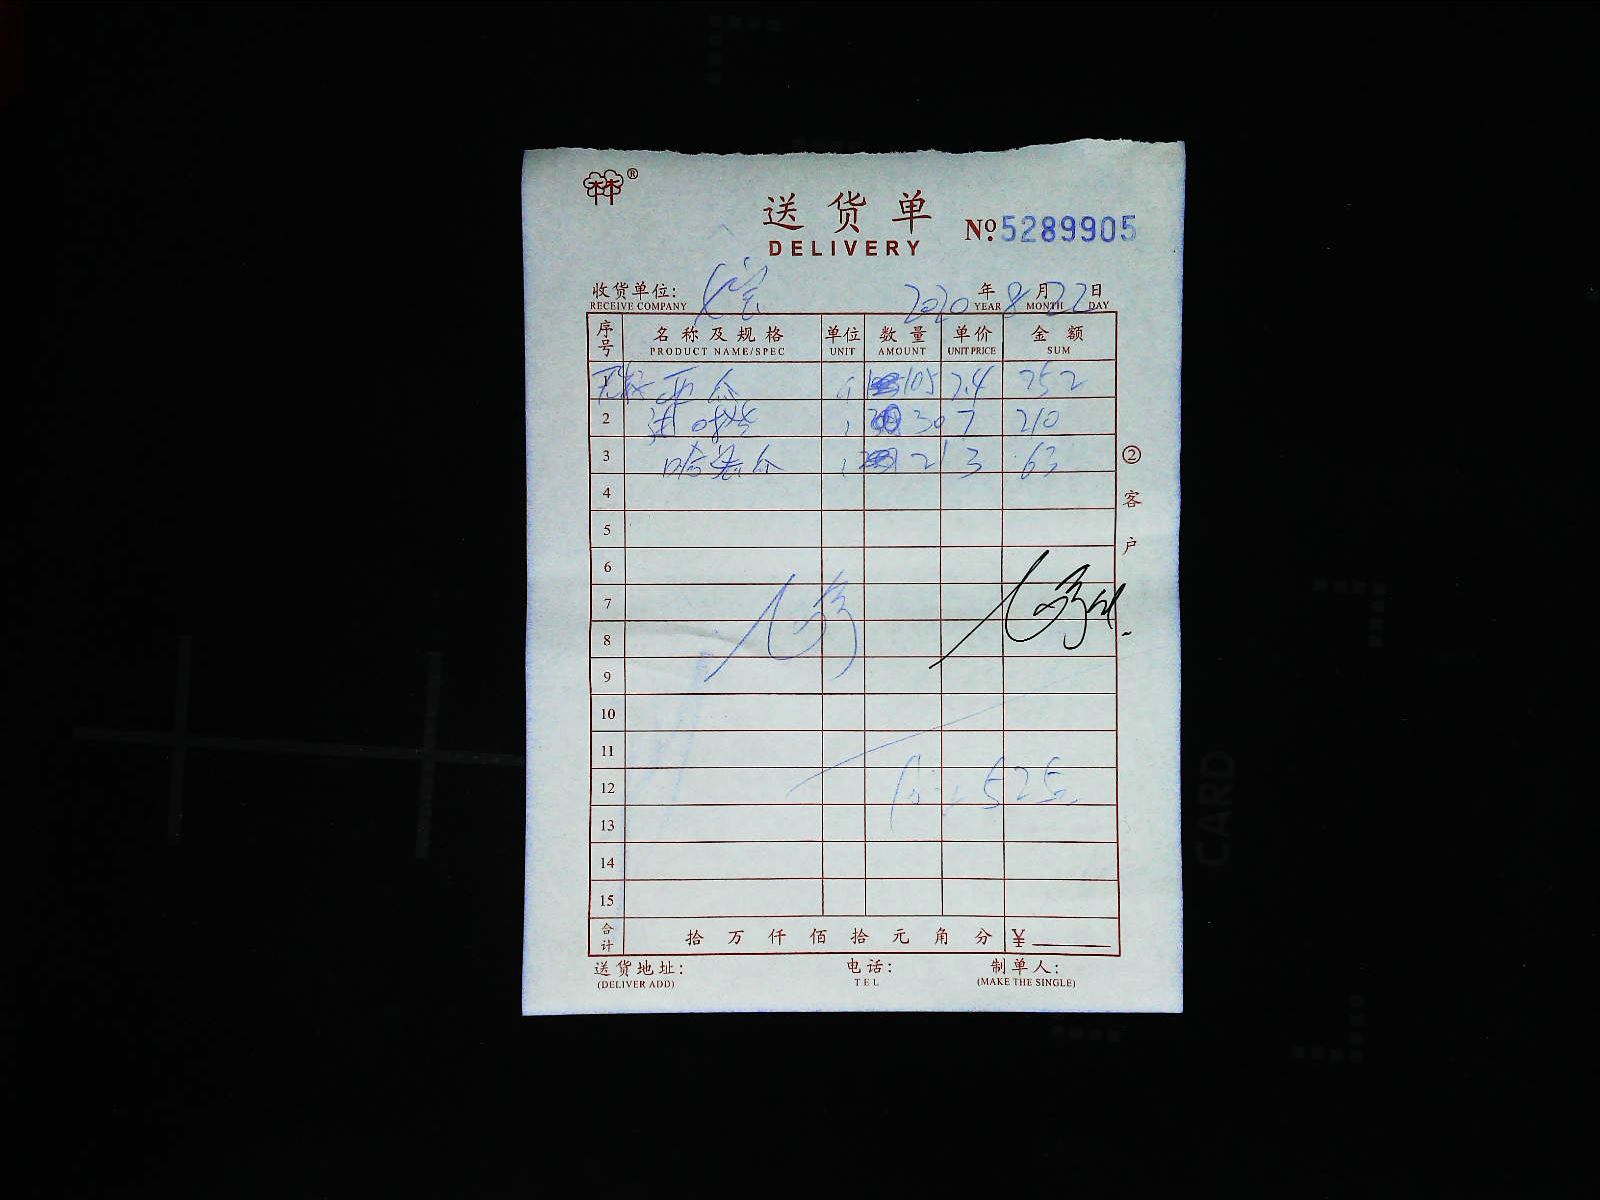 林®
送货单
DELIVERY
Nº 5289905
收货单位: 2020 年 8 月 22 日
RECEIVE COMPANY YEAR MONTH DAY
序号 名称及规格 单位 数量 单价 金额
PRODUCT NAME/SPEC UNIT AMOUNT UNIT PRICE SUM
1 无核西瓜 105 2.4 252
2 30 7 210
3 哈密瓜 21 3 63
4
5
6
7
8
9
10
11
12 525
13
14
15
合计 拾 万 仟 佰 拾 元 角 分 ¥
送货地址: 电话: 制单人:
(DELIVER ADD) TEL (MAKE THE SINGLE)
②客户
CARD